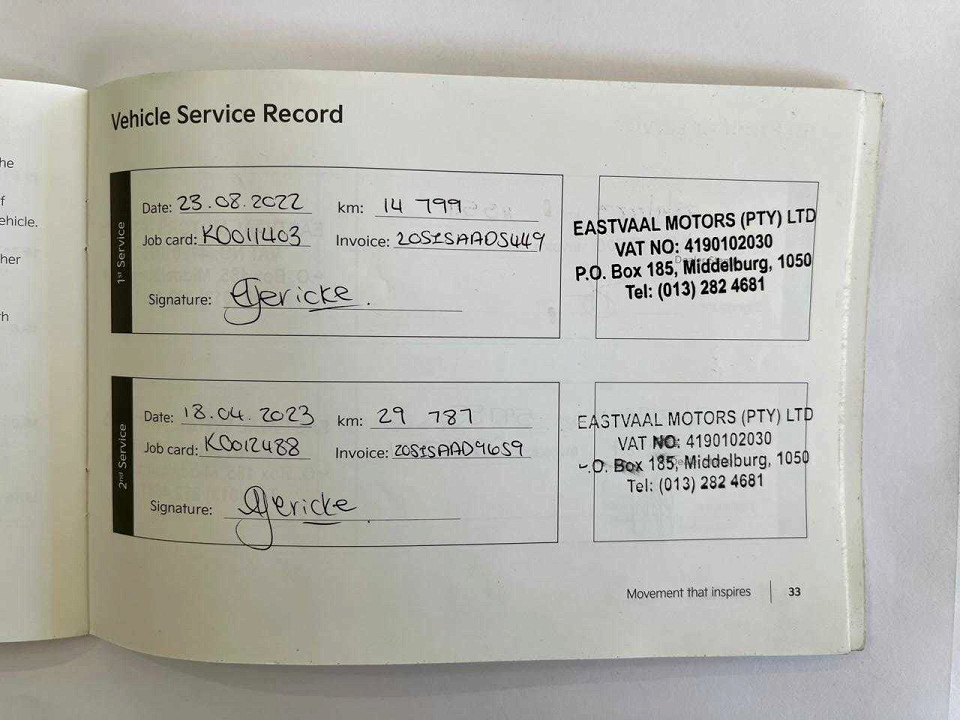 he
f
ehicle.
her
th
Vehicle Service Record
1st Service
Date: 23.08.2022 km: 14 799
Job card: K0011403 Invoice: 20SISAAD5449
Signature: Gericke.
EASTVAAL MOTORS (PTY) LTD
VAT NO: 4190102030
P.O. Box 185, Middelburg, 1050
Tel: (013) 282 4681
2nd Service
Date: 18.04.2023 km: 29 787
Job card: K0012488 Invoice: 20SISAAD9659
Signature: Gericke
EASTVAAL MOTORS (PTY) LTD
VAT NO: 4190102030
.O. Box 185, Middelburg, 1050
Tel: (013) 282 4681
Movement that inspires 33